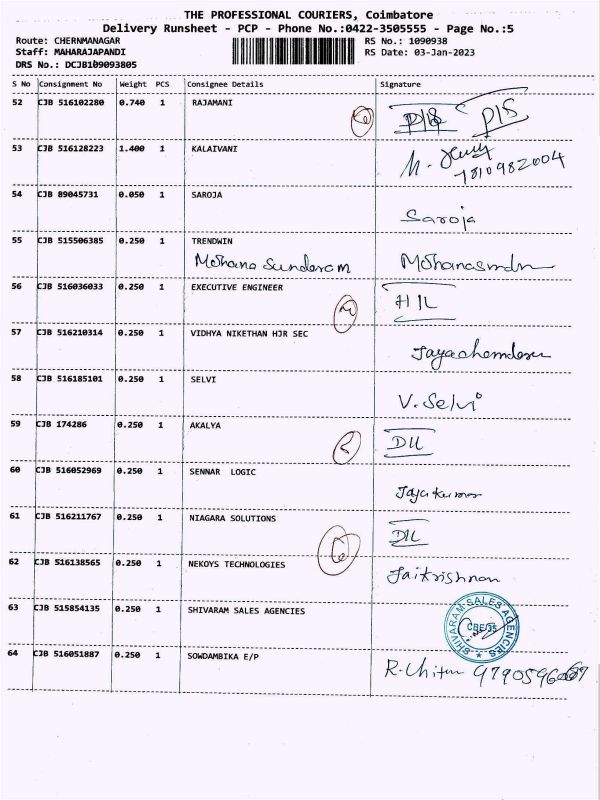 THE PROFESSIONAL COURIERS, Coimbatore
Delivery Runsheet - PCP - Phone No.:0422-3505555 - Page No.:5
Route: CHERNMANAGAR RS No.: 1090938
Staff: MAHARAJAPANDI RS Date: 03-Jan-2023
DRS No.: DCJB109093805
S No Consignment No Weight PCS Consignee Details Signature
52 CJB 516102280 0.740 1 RAJAMANI P/S
53 CJB 516128223 1.400 1 KALAIVANI
7810982004
54 CJB 89045731 0.050 1 SAROJA
Saroja
55 CJB 515506385 0.250 1 TRENDWIN
Mohana Sunderam
56 CJB 516036033 0.250 1 EXECUTIVE ENGINEER
H/L
57 CJB 516210314 0.250 1 VIDHYA NIKETHAN HJR SEC
58 CJB 516185101 0.250 1 SELVI
V. Selvi
59 CJB 174286 0.250 1 AKALYA
D/L
60 CJB 516052969 0.250 1 SENNAR LOGIC
Jayakumar
61 CJB 516211767 0.250 1 NIAGARA SOLUTIONS
D/L
62 CJB 516138565 0.250 1 NEKOYS TECHNOLOGIES
Jaikrishnan
63 CJB 515854135 0.250 1 SHIVARAM SALES AGENCIES
SHIVARAM SALES AGENCIES
CBE-35
64 CJB 516051887 0.250 1 SOWDAMBIKA E/P